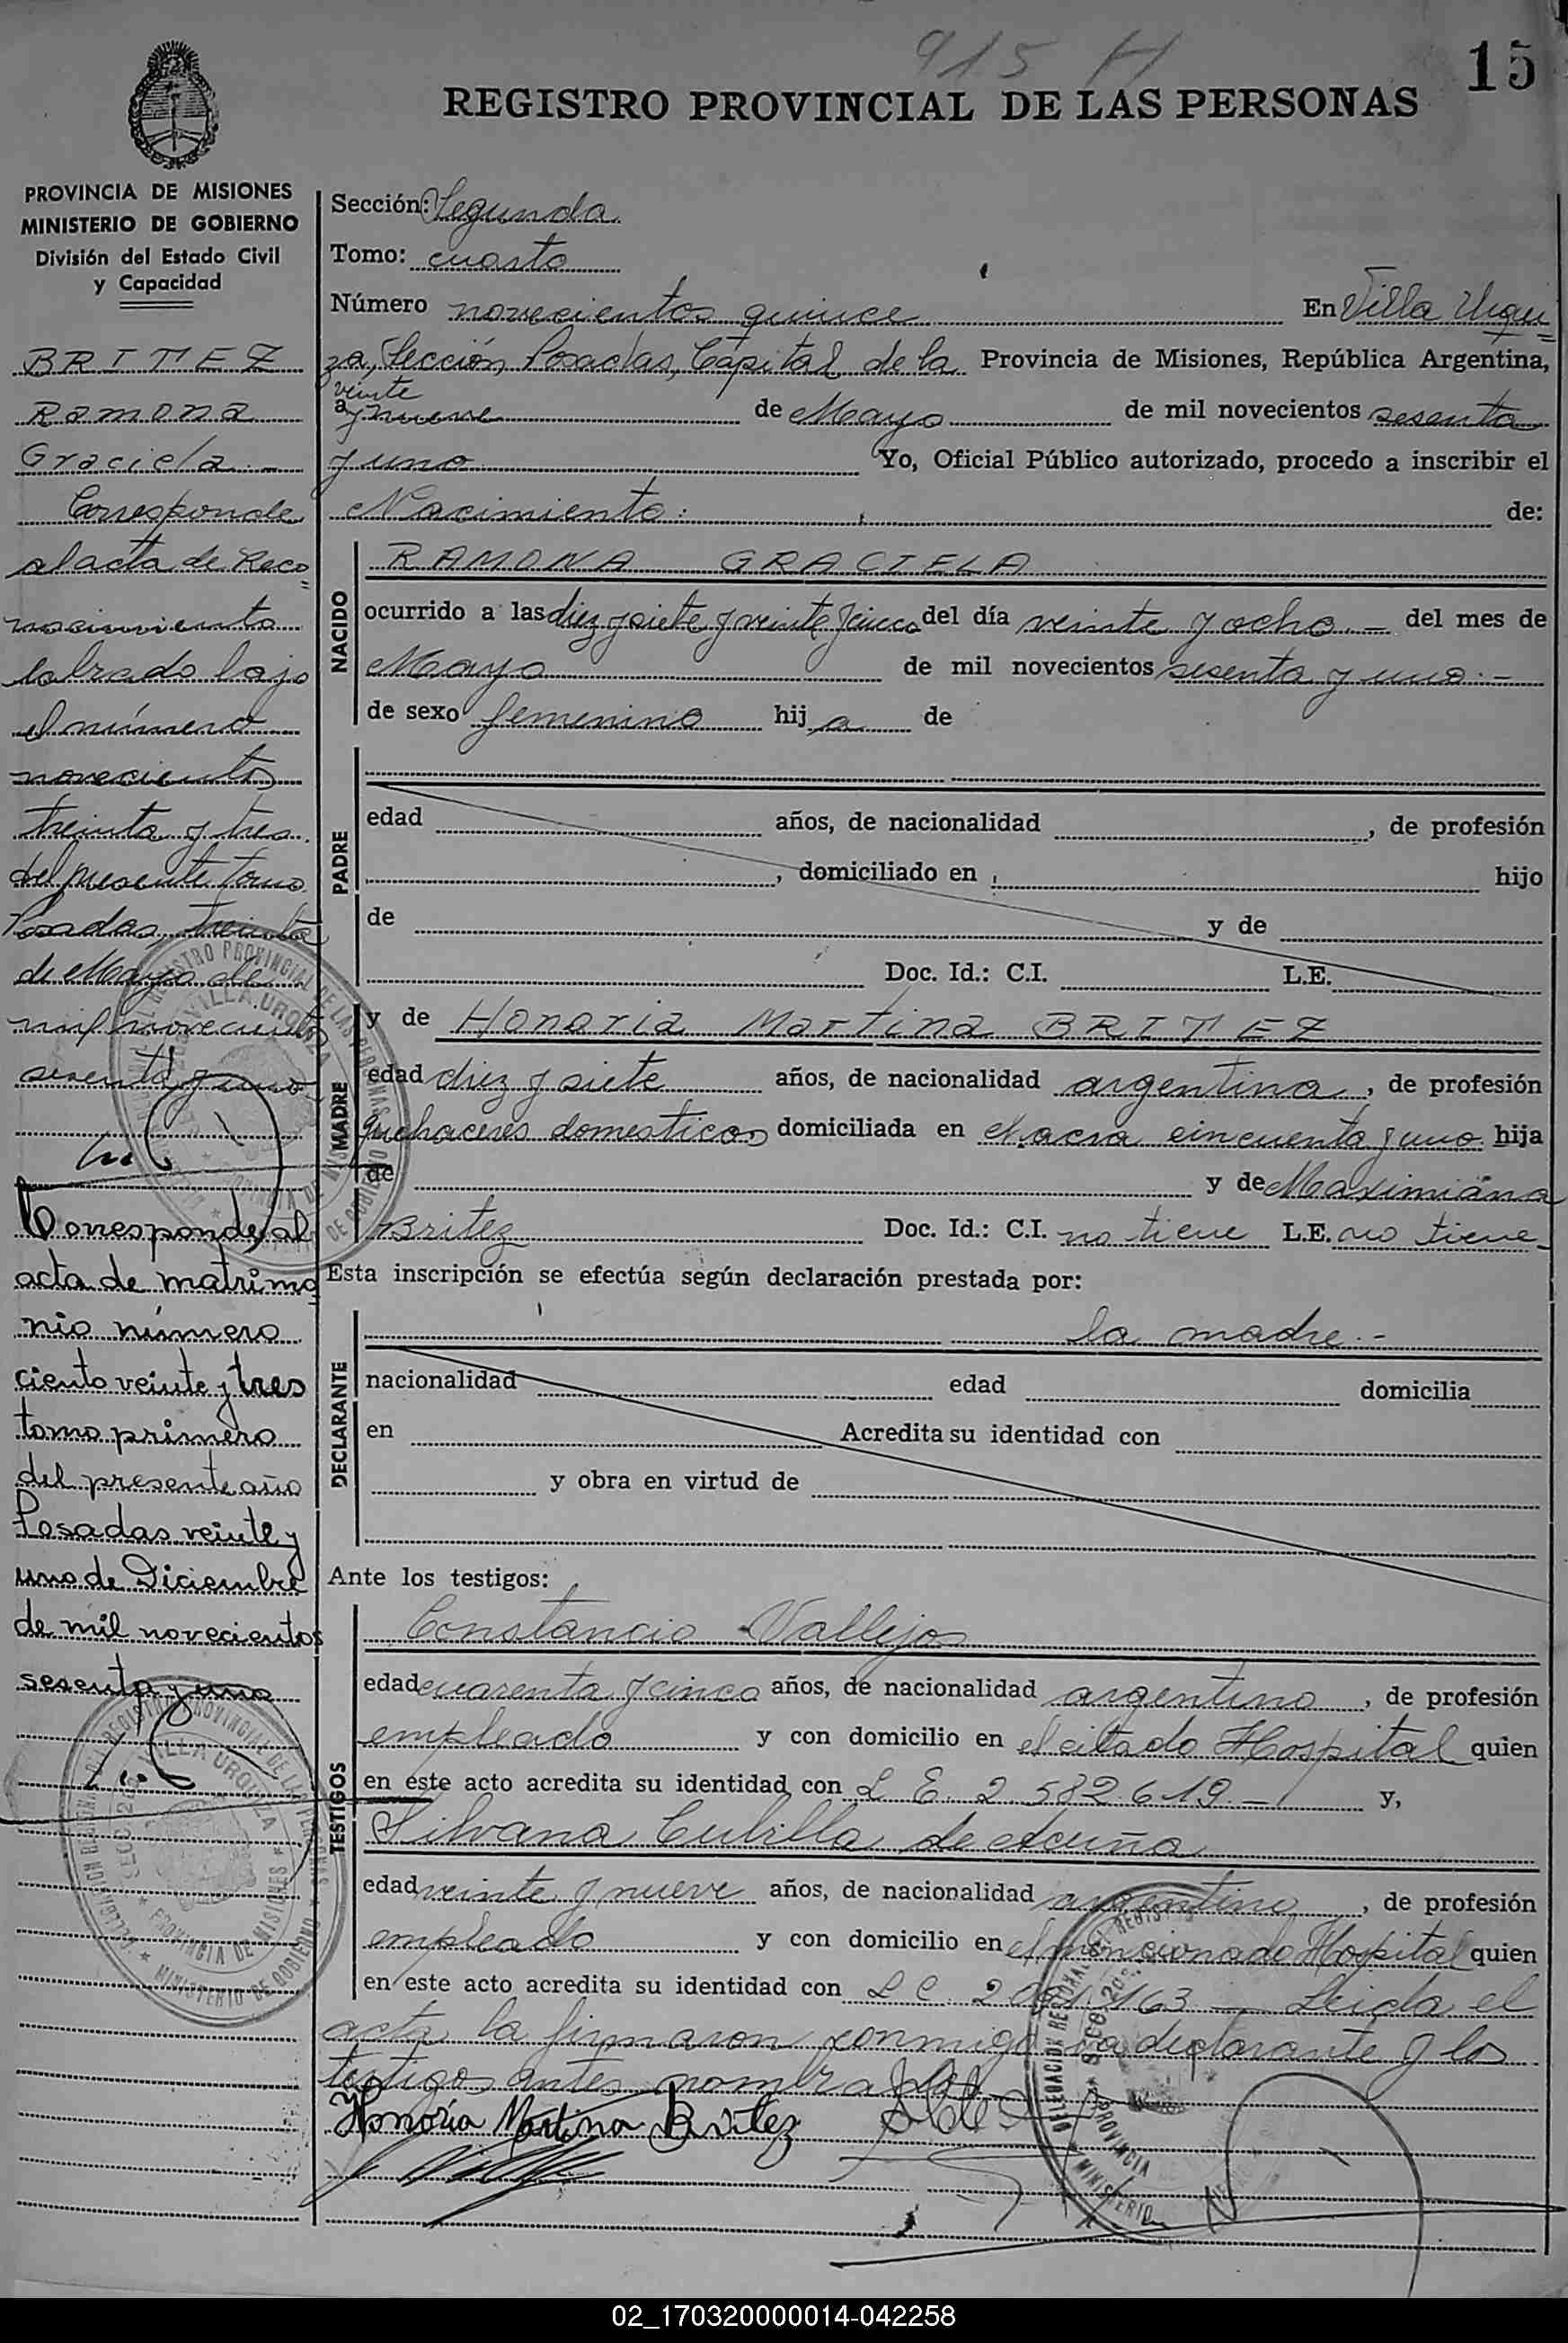 915 H
15
REGISTRO PROVINCIAL DE LAS PERSONAS
PROVINCIA DE MISIONES
MINISTERIO DE GOBIERNO
División del Estado Civil
y Capacidad
BRITEZ
Ramona
Graciela.-
Corresponde
al acta de Reco
nocimiento
labrado bajo
el número
novecientos
treinta y tres
del presente tomo
Posadas, treinta
de Mayo de
mil novecientos
sesenta y uno
Corresponde al
acta de matrimo
nio número
ciento veinte y tres
tomo primero
del presente año
Posadas veinte y
uno de Diciembre
de mil novecientos
sesenta y uno
Sección: Segunda
Tomo: cuarto
Número novecientos quince En Villa Urqui
za, Sección, Posadas, Capital de la Provincia de Misiones, República Argentina,
a veinte
y nueve de Mayo de mil novecientos sesenta
y uno Yo, Oficial Público autorizado, procedo a inscribir el
Nacimiento: de:
NACIDO
RAMONA GRACIELA
ocurrido a las diez y siete y veinte y cinco del día veinte y ocho.- del mes de
Mayo de mil novecientos sesenta y uno.-
de sexo femenino hij a de
PADRE
edad años, de nacionalidad , de profesión
, domiciliado en hijo
de y de
Doc. Id.: C.I. L.E.
MADRE
y de Honoria Martina BRITEZ
edad diez y siete años, de nacionalidad argentina, de profesión
quehaceres domesticos domiciliada en chacra cincuenta y uno hija
de y de Maximiana
Britez Doc. Id.: C.I. no tiene L.E. no tiene
Esta inscripción se efectúa según declaración prestada por:
DECLARANTE
la madre.-
nacionalidad edad domicilia
en Acredita su identidad con
y obra en virtud de
Ante los testigos:
TESTIGOS
Constancio Vallejos
edad cuarenta y cinco años, de nacionalidad argentino, de profesión
empleado y con domicilio en el citado Hospital quien
en este acto acredita su identidad con L E. 2.582.619- y,
Silvana Cubilla de Acuña
edad veinte y nueve años, de nacionalidad argentino, de profesión
empleado y con domicilio en el mencionado Hospital quien
en este acto acredita su identidad con L C. Leida el
acta la firmaron conmigo la declarante y los
testigos antes nombrados
Honoria Martina Britez
02_170320000014-042258